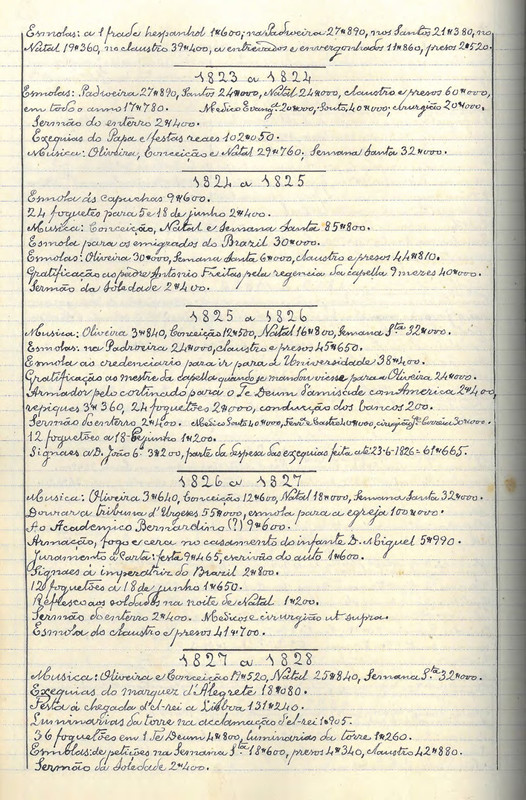 Esmolas: a 1 frade hespanhol 1$600; na Padroeira 27$890, nos Santos 21$380, no
Natal 19$360, no claustro 39$400, a entrevados e envergonhados 11$860, presos 2$520.
1823 a 1824
Esmolas: Padroeira 27$890, Santos 24$000, Natal 24$000, claustro e presos 60$000,
em todo o anno 17$780. Medico Evang.ta 20$000, Souto, 40$000; cirurgião 20$000.
Sermão do enterro 2$400.
Exequias do Papa e festas reaes 102$050.
Musica: Oliveira, Conceição e Natal 29$760; Semana Santa 32$000.
1824 a 1825
Esmola ás capuchas 9$600.
24 foguetes para 5 e 18 de junho 2$400.
Musica: Conceição, Natal e Semana Santa 85$800.
Esmola para os emigrados do Brazil 30$000.
Esmolas: Oliveira 30$000, Semana Santa 6$000, claustro e presos 44$810.
Gratificação ao padre Antonio Freitas pela regencia da capella 9 mezes 40$000.
Sermão da Soledade 2$400.
1825 a 1826
Musica: Oliveira 3$840, Conceição 12$500, Natal 16$800, Semana S.ta 32$000.
Esmolas: na Padroeira 24$000, claustro e presos 45$650.
Esmola ao credenciario para ir para a Universidade 38$400.
Gratificação ao mestre da capella quando se mandou viesse para a Oliveira 24$000.
Armador pelo cortinado para o Te Deum pamisade com America 2$400,
repiques 3$360, 24 foguetões 2$000, conducção dos bancos 200.
Sermão do enterro 2$400. Medico Souto 40$000, 40$000, cirurgião 30$000.
12 foguetões a 18 junho 1$200.
Signaes a D. João 6.º 3$200, parte da despesa das exequias feita até 23-6-1826 = 61$665.
1826 a 1827
Musica: Oliveira 3$640, Conceição 12$600, Natal 18$000, Semana Santa 32$000.
Dourar a tribuna d'Urgeses 55$000, esmola para a egreja 100$000.
Ao Academico Bernardino (?) 9$600.
Armação, fogo e cera no casamento do infante D. Miguel 5$990.
Juramento á Carta: festa 9$465, escrivão do auto 1$600.
Signaes á imperatriz do Brazil 2$800.
12 foguetões a 18 de junho 1$650.
Refresco aos soldados na noite de Natal 1$200.
Sermão do enterro 2$400. Medicos e cirurgião ut supra.
Esmola do claustro e presos 41$700.
1827 a 1828
Musica: Oliveira e Conceição 19$520, Natal 25$840, Semana S.ta 32$000.
Exequias do marquez d'Alegrete 18$080.
Festa á chegada d'el-rei a Lisboa 131$240.
Luminarias da torre na acclamação d'el-rei 1$905.
36 foguetões em 1 Te Deum 4$800, luminarias da torre 1$260.
Esmolas: de petições na Semana S.ta 18$600, presos 4$340, claustro 42$880.
Sermão da Soledade 2$400.